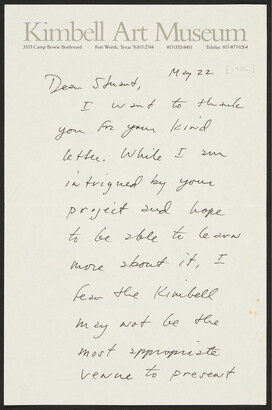 Kimbell Art Museum
3333 Camp Bowie Boulevard Fort Worth, Texas 76107-2744 817-332-8451 Telefax: 817-877-1264
May 22
Dear Stuart,
I want to thank
you for your kind
letter. While I am
intrigued by your
project and hope
to be able to learn
more about it, I
fear the Kimbell
may not be the
most appropriate
venue to present